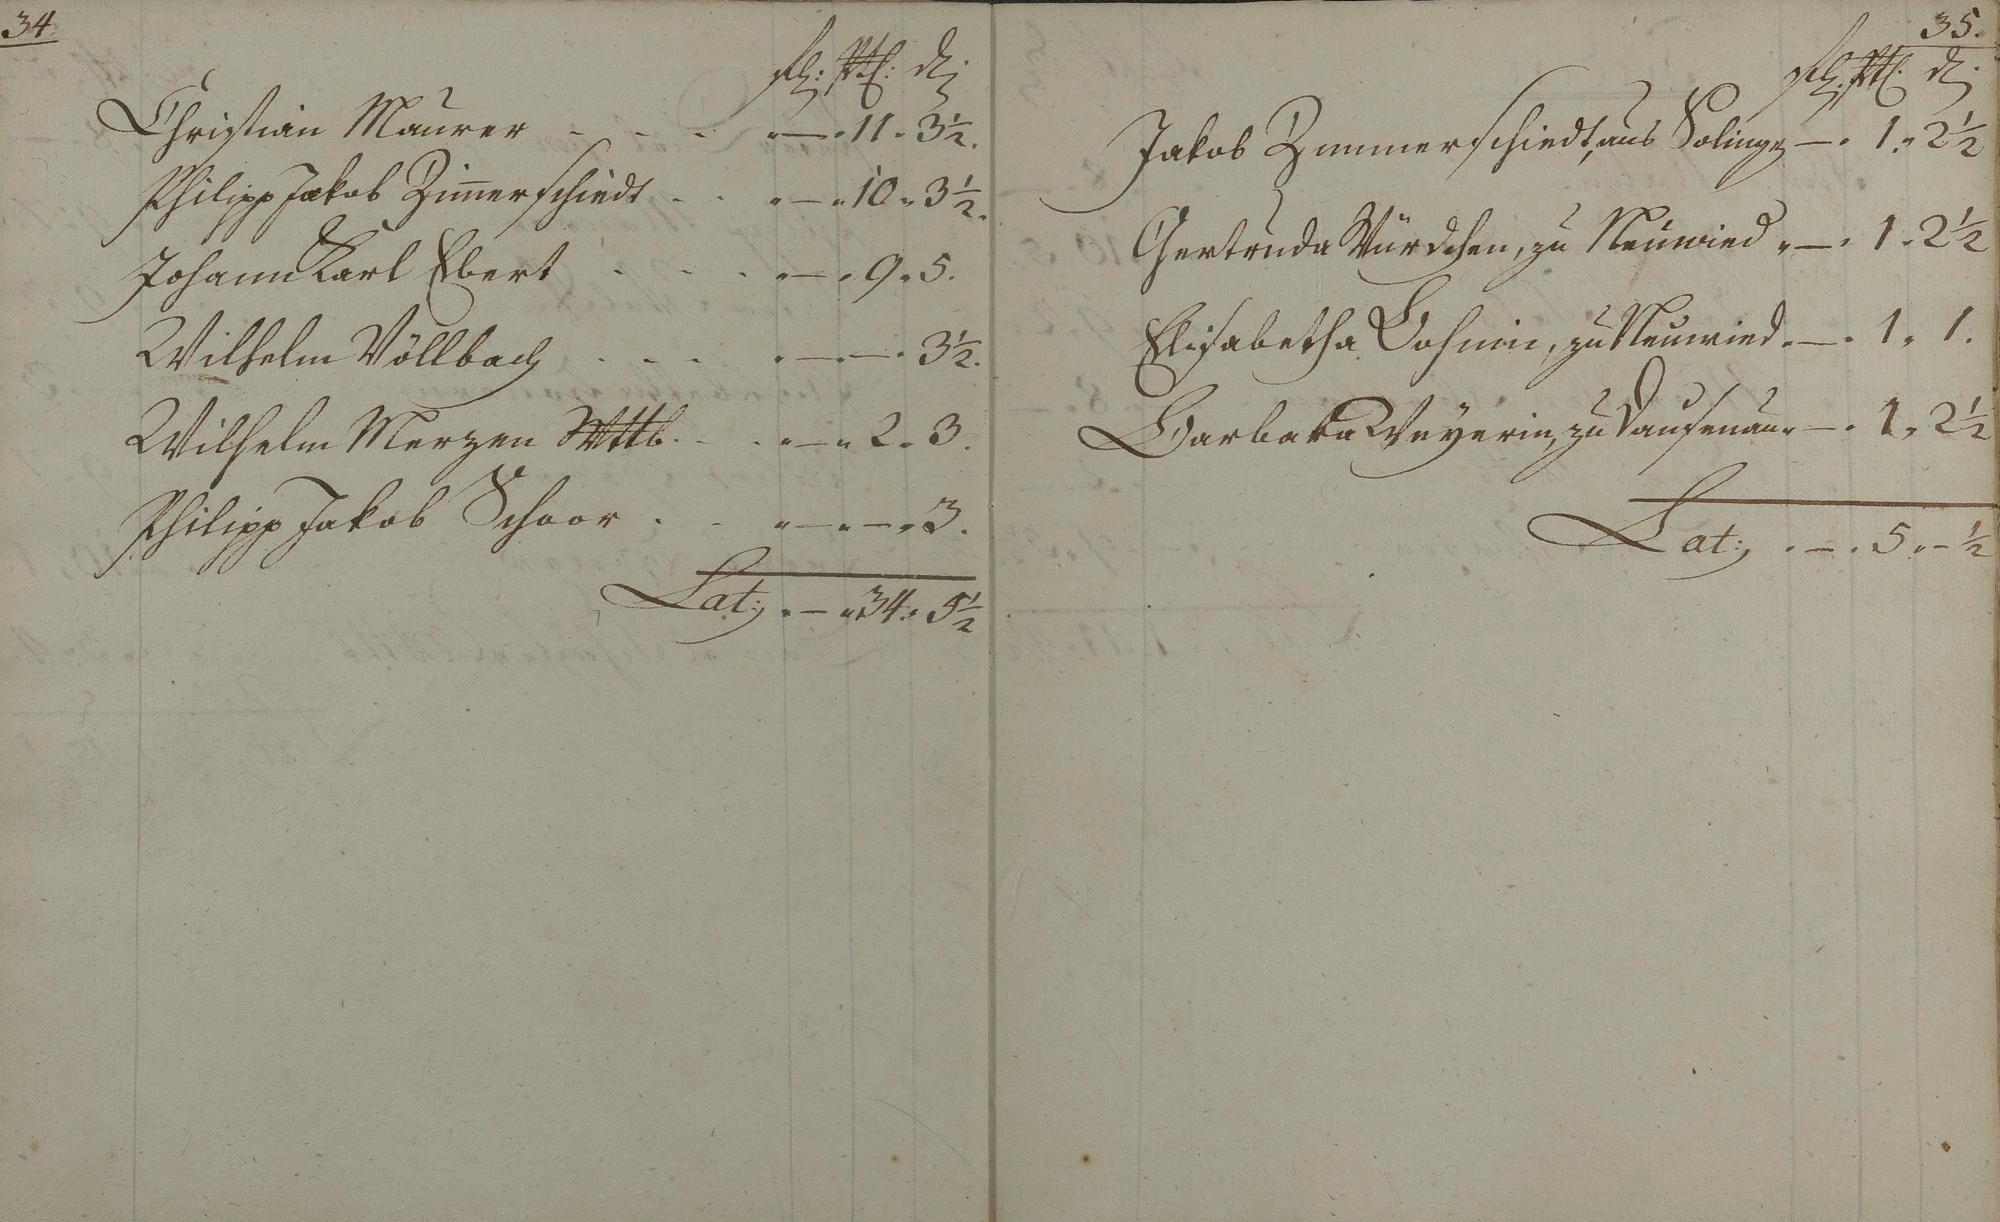 34.
fl: Xtl: d:
Christian Maurer - - - " — " 11 " 3½.
Philipp Jakob Zim̅erschiedt - - " — " 10 " 3½.
Johann Karl Ebert - - - " — " 9 " 5.
Wilhelm Völlbach - - - " — " — " 3½.
Wilhelm Merzen Wttb. - - " — " 2 " 3.
Philipp Jakob Schoor - - " — " — " 3.
Lat: " — " 34 " 5½
35.
fl: Xtl: d:
Jakob Zimmerschiedt, aus Soling — " 1 " 2½
Gertruda Würdchen, zu Neuwied " — " 1 " 2½
Elisabetha zu Neuwied " — " 1 " 1.
Barbara Weyerin, zu Dausenau " — " 1 " 2½
Lat: " — " 5 " — ½